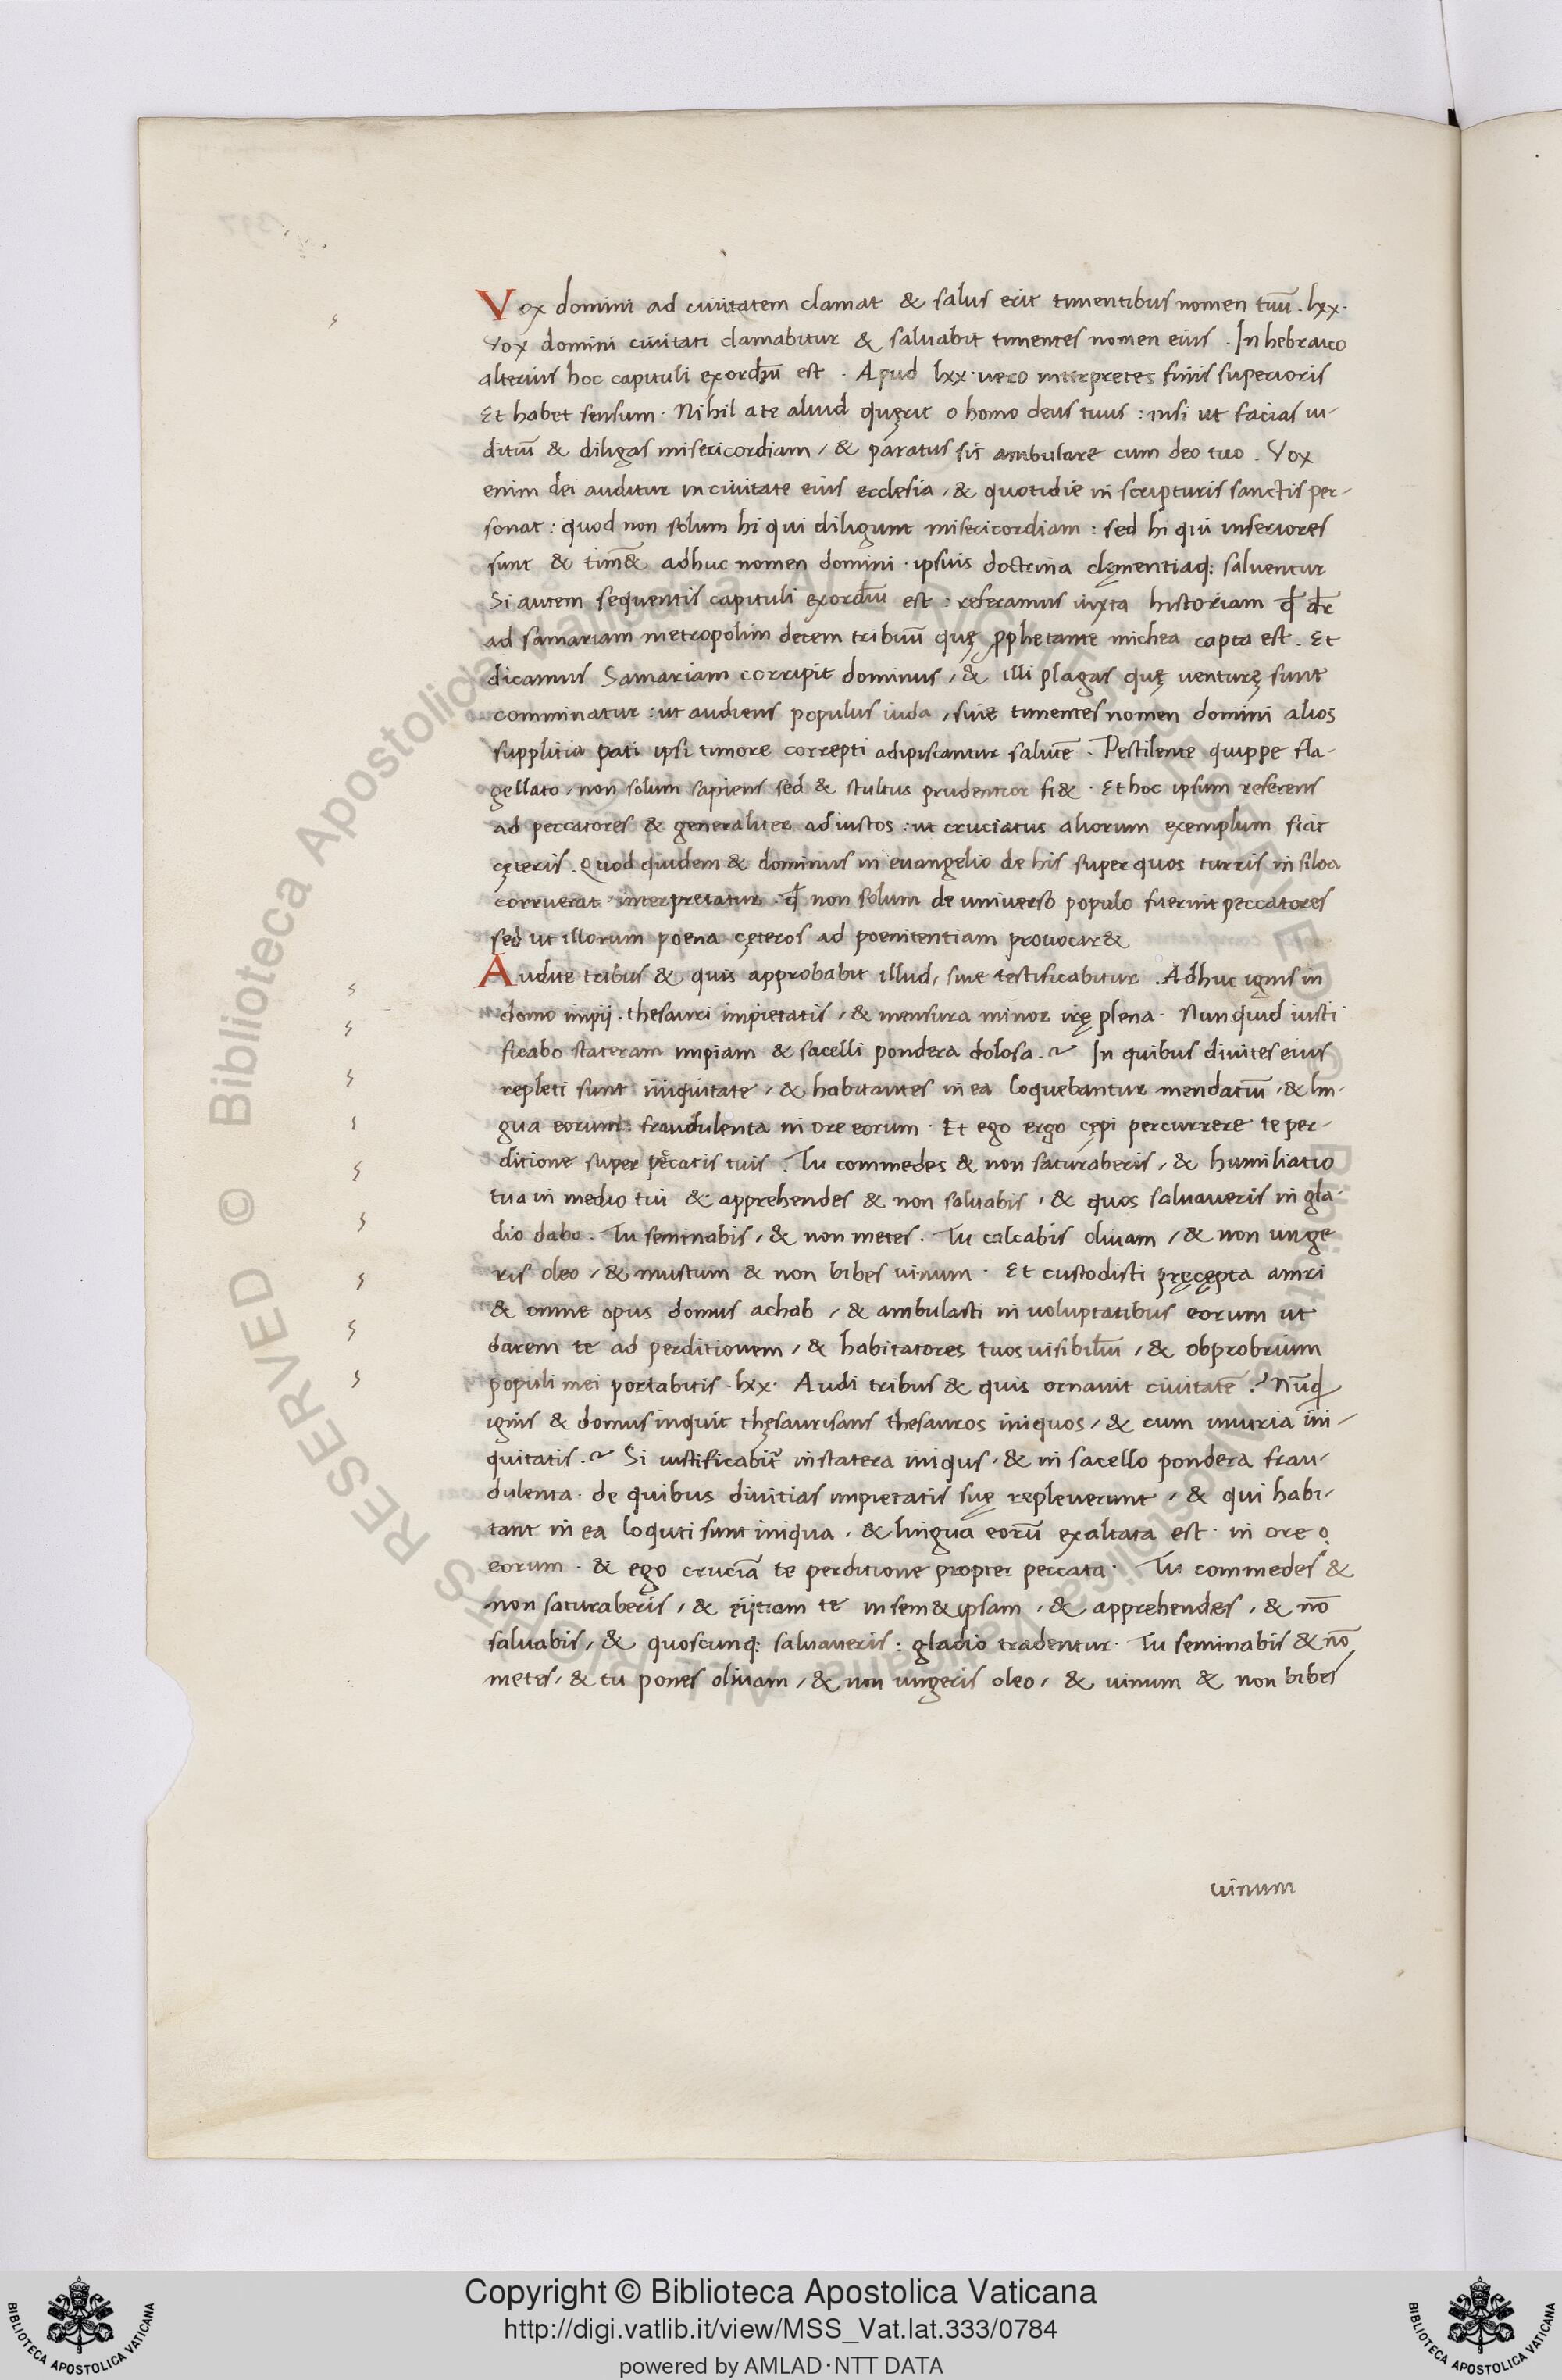 Vox domini ad ciuitatem clamat & salus erit timentibus nomen tuū . lxx .
Vox domini ciuitati clamabitur & saluabit timentes nomen eius . In hebraico
alterius hoc capituli exordiū est . Apud lxx . uero interpretes finis superioris
Et habet sensum . Nihil a te aliud quęrit o homo deus tuus : nisi ut facias iu-
ditiū & diligas misericordiam , & paratus sis ambulare cum deo tuo . Vox
enim dei auditur in ciuitate eius ecclesia , & quotidie in scripturis sanctis per-
sonat : quod non solum hi qui diligunt misericordiam : sed hi qui inferiores
sunt & tim̄& adhuc nomen domini . ipsius doctrina clęmentiaq: saluentur
Si autem sequentis capituli exordiū est : referamus iuxta historiam ꝙ dr̄
ad samariam metropolim decem tribuū quę ꝓphetante michea capta est . Et
dicamus Samariam corripit dominus , & illi plagas quę venturę sunt
comminatur : ut audiens populus iuda , siue timentes nomen domini alios
supplitia pati ipsi timore correpti adipiscantur salutē . Pestilente quippe fla-
gellato , non solum sapiens sed & stultus prudentior fi& . Et hoc ipsum referens
ad peccatores & generaliter ad iustos : ut cruciatus aliorum exemplum ficit
cęteris . Quod quidem & dominus in euangelio de his super quos turris in siloa
corruerat interpretatur . ꝙ non solum de universo populo fuerint peccatores
sed ut illorum poena cęteros ad poenitentiam prouocar&
Audite tribus & quis approbabit illud , siue testificabitur . Adhuc ignis in
domo impij . thesauri impietatis , & mensura minor irę plena . Nunquid iusti
ficabo stateram impiam & sacelli pondera dolosa .? In quibus diuites eius
repleti sunt iniquitate , & habitantes in ea loquebantur mendatiū , & lin-
gua eorum fraudulenta in ore eorum . Et ego ergo cępi percurrere te per-
ditione super pēcatis tuis . Tu commedes & non saturaberis , & humiliatio
tua in medio tui & apprehendes & non saluabis , & quos saluaueris in gla-
dio dabo . Tu seminabis , & non metes . Tu calcabis oliuam , & non unge
ris oleo , & mustum & non bibes uinum . Et custodisti pręcępta amri
& omne opus domus achab , & ambulasti in uoluptatibus eorum ut
darem te ad perditionem , & habitatores tuos uisibilīū , & obprobrium
populi mei portabitis . lxx . Audi tribus & quis ornauit ciuitatē .? Nūqd
ignis & domus inquit thęsaurisans thesauros iniquos , & cum iniuria ini-
quitatis .? Si iustificabit̄ in statera iniqus , & in sacello pondera frau-
dulenta . de quibus diuitias impietatis suę repleuerunt , & qui habi-
tant in ea loquti sunt iniqua , & lingua eorū exaltata est . in ore o
eorum . & ego cruciā te perditione propter peccata . Tu commedes &
non saturaberis , & eijtiam te in sem&ipsam , & apprehendes , & nō
saluabis , & quoscunq: saluaueris : gladio tradentur . Tu seminabis & nō
metes , & tu pones oliuam , & non ungeris oleo , & uinum & non bibes
uinum
Biblioteca Apostolica Vaticana ALL RIGHTS RESERVED ©
Copyright © Biblioteca Apostolica Vaticana
http://digi.vatlib.it/view/MSS_Vat.lat.333/0784
powered by AMLAD·NTT DATA
BIBLIOTECA APOSTOLICA VATICANA
BIBLIOTECA APOSTOLICA VATICANA